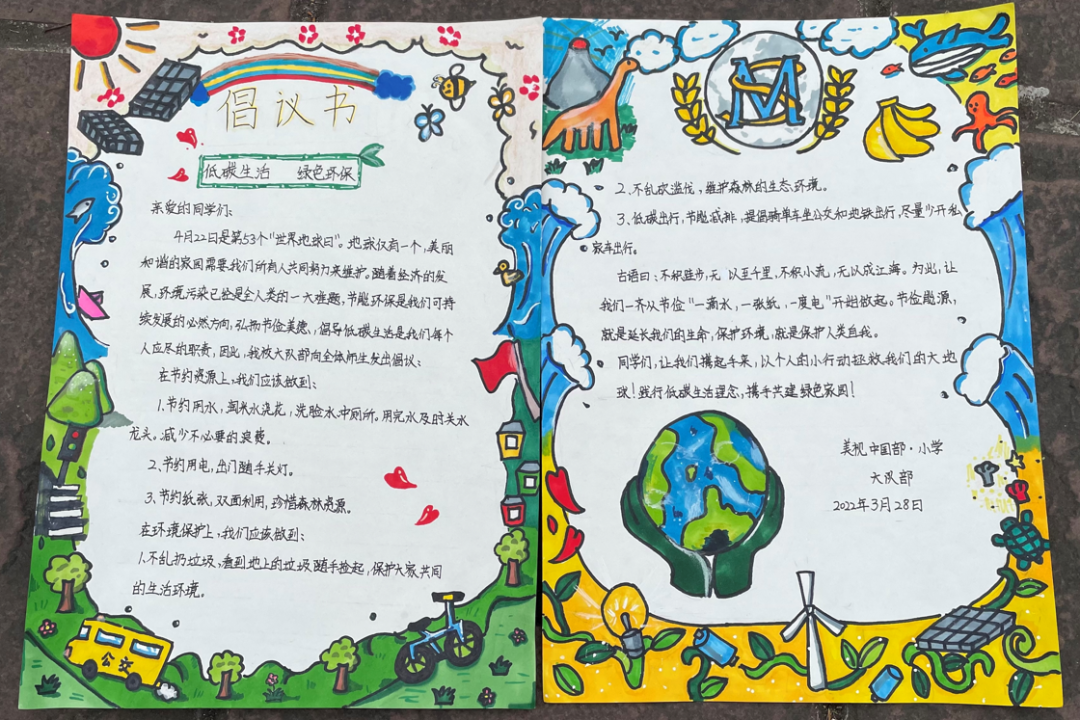 倡议书
低碳生活 绿色环保
亲爱的同学们:
4月22日是第53个"世界地球日"。地球仅有一个,美丽
和谐的家园需要我们所有人共同努力来维护。随着经济的发
展,环境污染已经是全人类的一大难题,节能环保是我们可持
续发展的必然方向,弘扬节俭美德,倡导低碳生活是我们每个
人应尽的职责,因此,我校大队部向全体师生发出倡议:
在节约资源上,我们应该做到:
1.节约用水,淘米水浇花,洗脸水冲厕所。用完水及时关水
龙头。减少不必要的浪费。
2、节约用电,出门随手关灯。
3、节约纸张,双面利用,珍惜森林资源。
在环境保护上,我们应该做到:
1.不乱扔垃圾,看到地上的垃圾随手捡起,保护大家共同
的生活环境。
公交
MS
2.不乱砍滥伐,维护森林的生态环境。
3、低碳出行,节能减排,提倡骑单车坐公交和地铁出行,尽量少开私
家车出行。
古语曰:不积跬步,无以至千里,不积小流,无以成江海。为此,让
我们一齐从节俭"一滴水,一张纸,一度电"开始做起。节俭能源,
就是延长我们的生命,保护环境,就是保护人类自我。
同学们,让我们携起手来,以个人的小行动拯救我们的大地
球!践行低碳生活理念,携手共建绿色家园!
美视中国部·小学
大队部
2022年3月28日